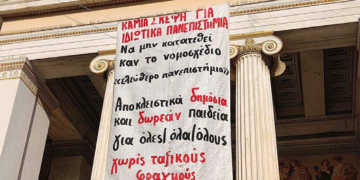 ΚΑΜΙΑ ΣΚΕΨΗ ΓΙΑ
ΙΔΙΩΤΙΚΑ ΠΑΝΕΠΙΣΤΗΜΙΑ
Να μην κατατεθεί
καν το νομοσχέδιο
«ελεύθερο πανεπιστήμιο»
Αποκλειστικά δημόσια
και δωρεάν παιδεία
για όλες/όλα/όλους
χωρίς ταξικούς
φραγμούς